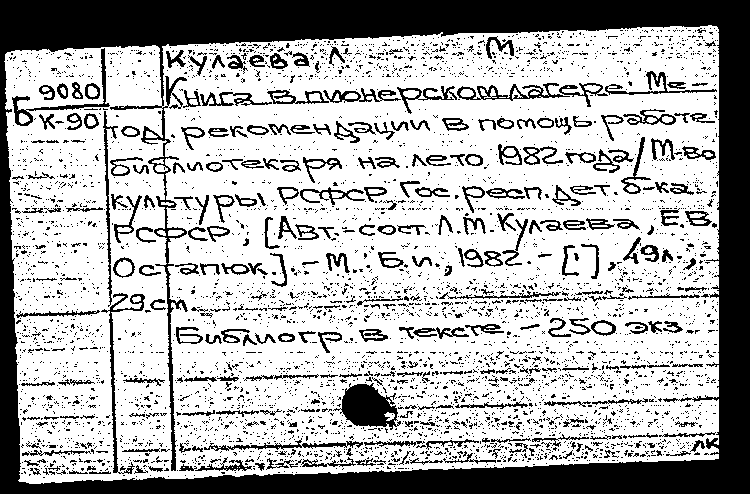 Кулаева, Л М
Б 9080 Книга в пионерском лагере: Ме-
К-90 тод. рекомендации в помощь работе
библиотекаря на лето 1982 года / М-во
культуры РСФСР, Гос. респ. дет. б-ка
РСФСР; [Авт.-сост. Л.М. Кулаева, Е.В.
Остапюк.]. - М.: Б.и., 1982. - [1], 49л.;
29.см.
Библиогр. в тексте. - 250 экз.
лк